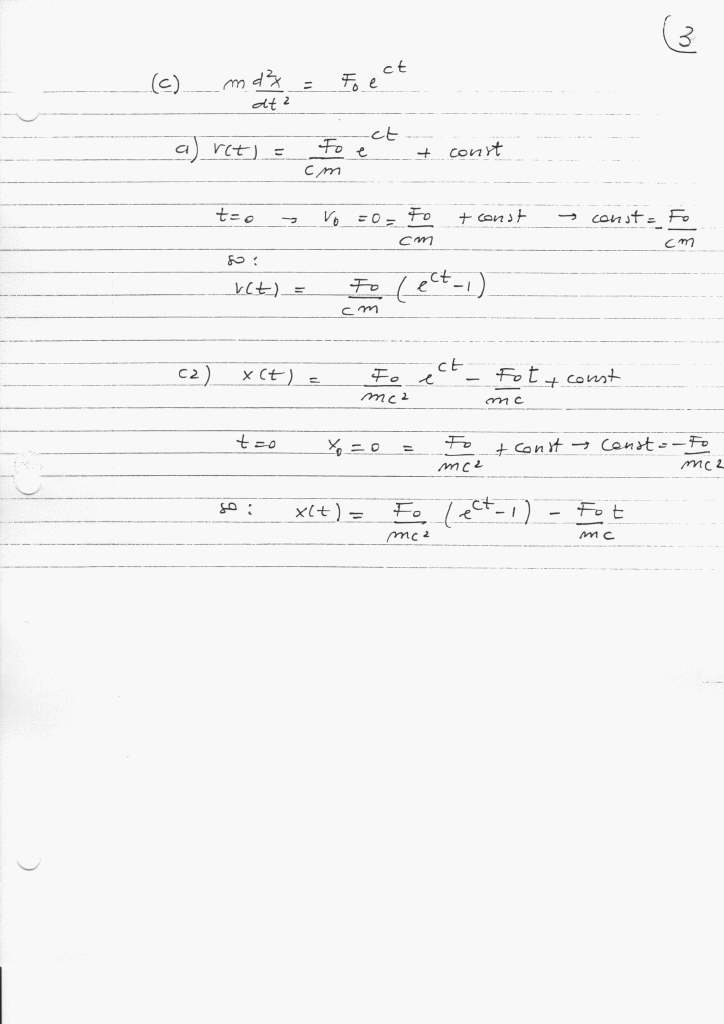 (3
(c) m d²x/dt² = F₀ e^ct
a) v(t) = F₀/cm e^ct + const
t=0 → v₀ = 0 = F₀/cm + const → const = F₀/cm
so:
v(t) = F₀/cm (e^ct - 1)
c2) x(t) = F₀/mc² e^ct - F₀t/mc + const
t=0 x₀ = 0 = F₀/mc² + const → const = -F₀/mc²
so: x(t) = F₀/mc² (e^ct - 1) - F₀t/mc